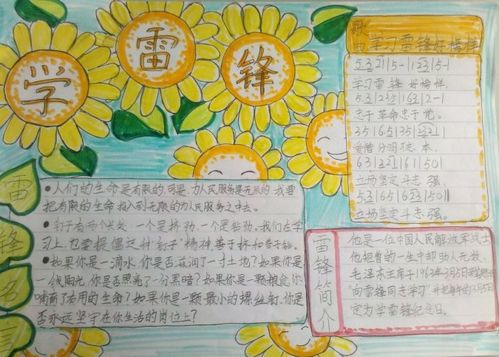 学
雷
锋
歌曲学习雷锋好榜样
学习雷锋 好榜样
忠于革命忠于党。
爱憎分明不忘本
立场坚定斗志强
立场坚定斗志强。
雷
锋
名
言
●人们的生命是有限的,可是,为人民服务是无限的,我要
把有限的生命,投入到无限的为人民服务之中去。
●钉子有两个长处:一个是挤劲,一个是钻劲,我们在学
习上,也要提倡这种"钉子"精神,善于挤和善于钻。
●如果你是一滴水,你是否滋润了一寸土地?如果你是
一线阳光,你是否照亮了一分黑暗?如果你是一颗粮食,你
哺育了有用的生命?如果你是一颗最小的螺丝钉,你是
否永远坚守在你生活的岗位上?
雷
锋
简
介
他是一位中国人民解放军战士,
他把青的一生中帮助人无数,
毛泽东主席于1963年3月5日
"向雷锋同志学习"并把每年的3月5日
定为学雷锋纪念日。